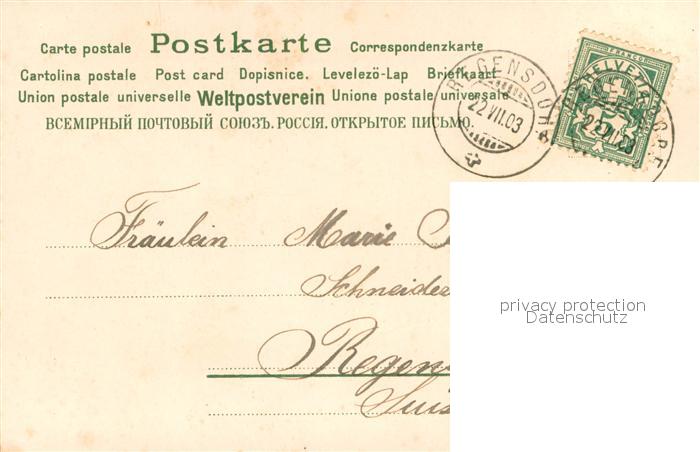 Carte postale Postkarte Correspondenzkarte
Cartolina postale Post card Dopisnice. Levelezö-Lap Briefkaart
Union postale universelle Weltpostverein Unione postale universale
ВСЕМІРНЫЙ ПОЧТОВЫЙ СОЮЗЪ. РОССІЯ. ОТКРЫТОЕ ПИСЬМО.
REGENSDORF
22 VII.03
FRANCO
HELVETIA
22.VII.03
Fräulein Marie
Schneider
Regens
Suis
privacy protection
Datenschutz